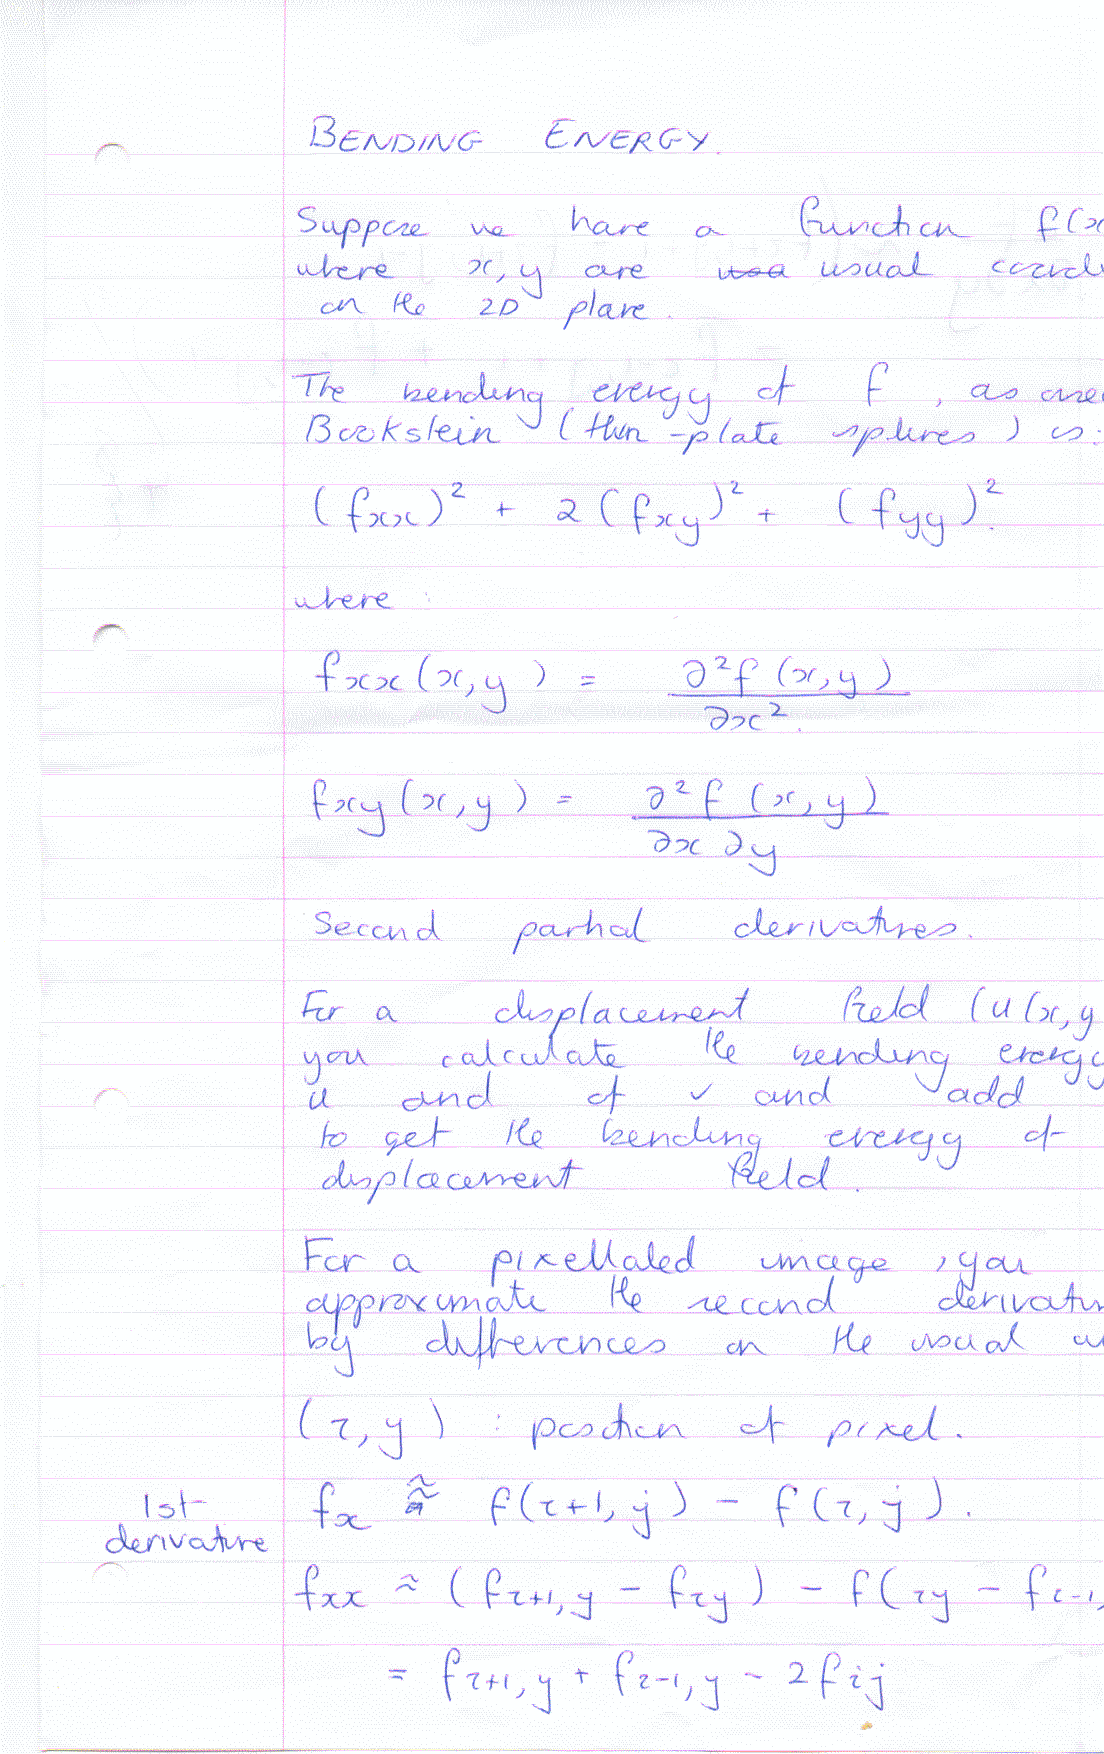 BENDING ENERGY.
Suppose we have a function f(x
where x, y are usual coord
on the 2D plane.
The bending energy of f, as
Bookstein (thin-plate splines) is:
(fxx)² + 2(fxy)² + (fyy)².
where :
fxx(x,y) = ∂²f(x,y)
∂x².
fxy(x,y) = ∂²f(x,y)
∂x ∂y
Second partial derivatives.
For a displacement field (u(x,y
you calculate the bending energy
u and of v and add
to get the bending energy of
displacement field.
For a pixellated image, you
approximate the second derivativ
by differences in the usual
(i,y) : position of pixel.
1st
derivative
fx ≈ f(i+1, j) - f(i, j).
fxx ≈ (fi+1,y - fiy) - f(iy - fi-1,
= fi+1,y + fi-1,y - 2fij